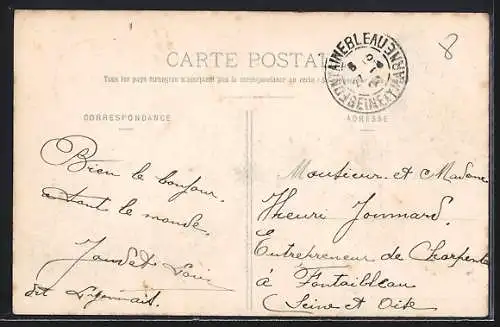 CARTE POSTALE
Tous les pays étrangers n'acceptent pas la correspondance au recto
FONTAINEBLEAU
SEINE ET MARNE
8
CORRESPONDANCE
ADRESSE
Bien le bonjour
a tout le monde
dit Lyonnais.
Monsieur et Madame
Entrepreneur de Charpente
à Fontaibleau
Seine et Oise